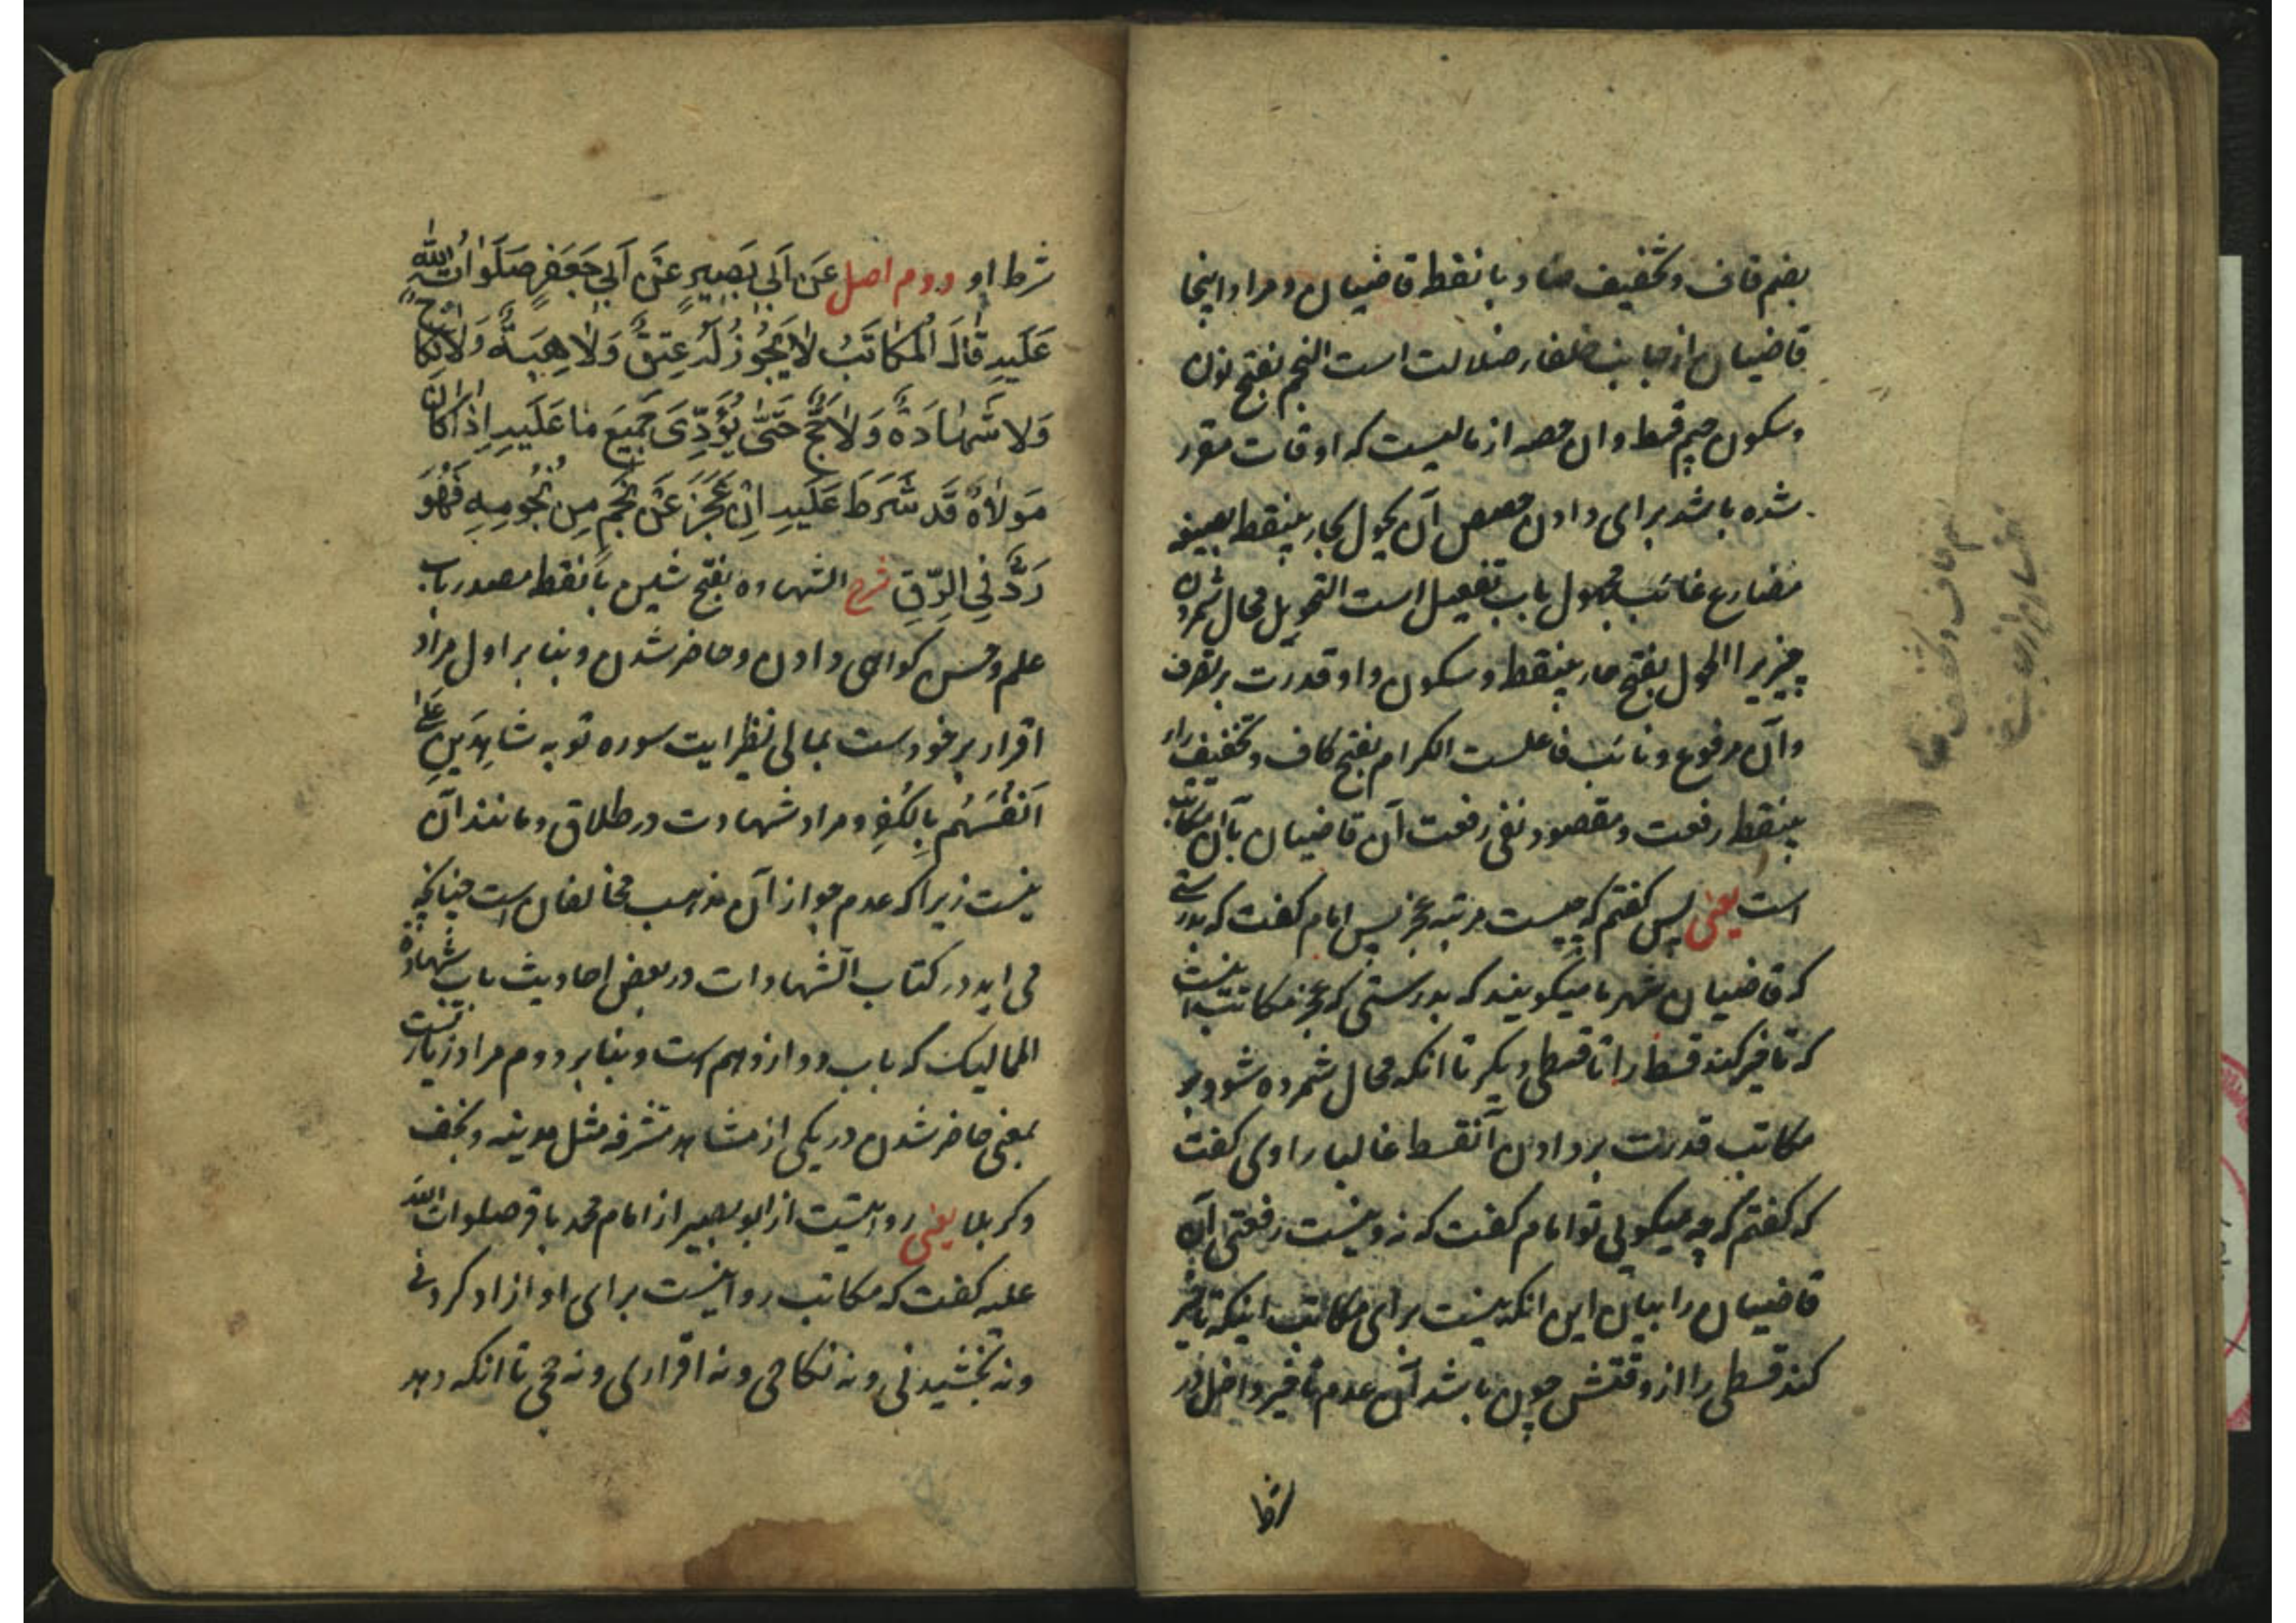 بضم قاف و تخفیف ضاد با نقطه قاضیان و مراد اینجا
قاضیان از جانب خلفاء ضلالت است النجم بفتح نون
و سکون جیم قسط و ان حصه از مالیست که اوقات مقرر
شده باشد برای دادن حصص آن یحول بحاء بینقطه بصیغه
مضارع غائب مجهول باب تفعیل است التحویل محال شمردن
چیزیرا الحول بفتح حاء بینقطه و سکون واو قدرت بر تصرف
و آن مرفوع و نائب فاعلست الکرام بفتح کاف و تخفیف راء
بینقطه رفعت و مقصود نفی رفعت آن قاضیان بآن مکاتب
است یعنی پس کفتم که چیست مرتبه عجز پس امام کفت که بدرستی
که قاضیان شهر ما میکویند که بدرستی که عجز مکاتب اینست
که تاخیر کند قسط را تا قسطی دیکر تا انکه محال شمرده شود بر
مکاتب قدرت بر دادن آنقسط غالبا راوی کفت
که کفتم که چه میکویی تو امام کفت که نه و نیست رفعتی آن
قاضیان را بیان این انکه نیست برای مکاتب اینکه تاخیر
کند قسطی را از وقتش چون باشد آن عدم تاخیر داخل در
شرط
شرط او دوم اصل عَن اَبی بَصِیرٍ عَن اَبی جَعفَرٍ صَلَوَاتُ اللّٰه
عَلَیهِ قَالَ المُکَاتَبُ لَا یَجُوزُ لَهُ عِتقٌ وَلَا هِبَةٌ وَلَا نِکَاحٌ
وَلَا شَهَادَةٌ وَلَا حَجٌّ حَتّٰی یُؤَدِّیَ جَمِیعَ مَا عَلَیهِ اِذَا کَانَ
مَولَاهُ قَد شَرَطَ عَلَیهِ اِن عَجَزَ عَن نَجمٍ مِن نُجُومِهِ فَهُوَ
رَدٌّ فِی الرِّقِّ شرح الشهاده بفتح شین با نقطه مصدر باب
علم و حسن کواهی دادن و حاضر شدن و بنا بر اول مراد
اقرار بر خودست بمالی نظیر ایت سوره توبه شَاهِدِینَ عَلٰی
اَنفُسِهِم بِالکُفرِ و مراد شهادت در طلاق و مانند آن
نیست زیرا که عدم جواز آن مذهب مخالفان است چنانچه
می اید در کتاب الشهادات در بعض احادیث باب شهادة
الممالیک که باب دوازدهم است و بنا بر دوم مراد زیارتست
بمعنی حاضر شدن در یکی از مشاهد مشرفه مثل مدینه و نجف
و کربلا یعنی روایتست از ابو بصیر از امام محمد باقر صلوات اللّه
علیه کفت که مکاتب روا نیست برای او ازاد کردنی
و نه بخشیدنی و نه نکاحی و نه اقراری و نه حجی تا انکه دهد